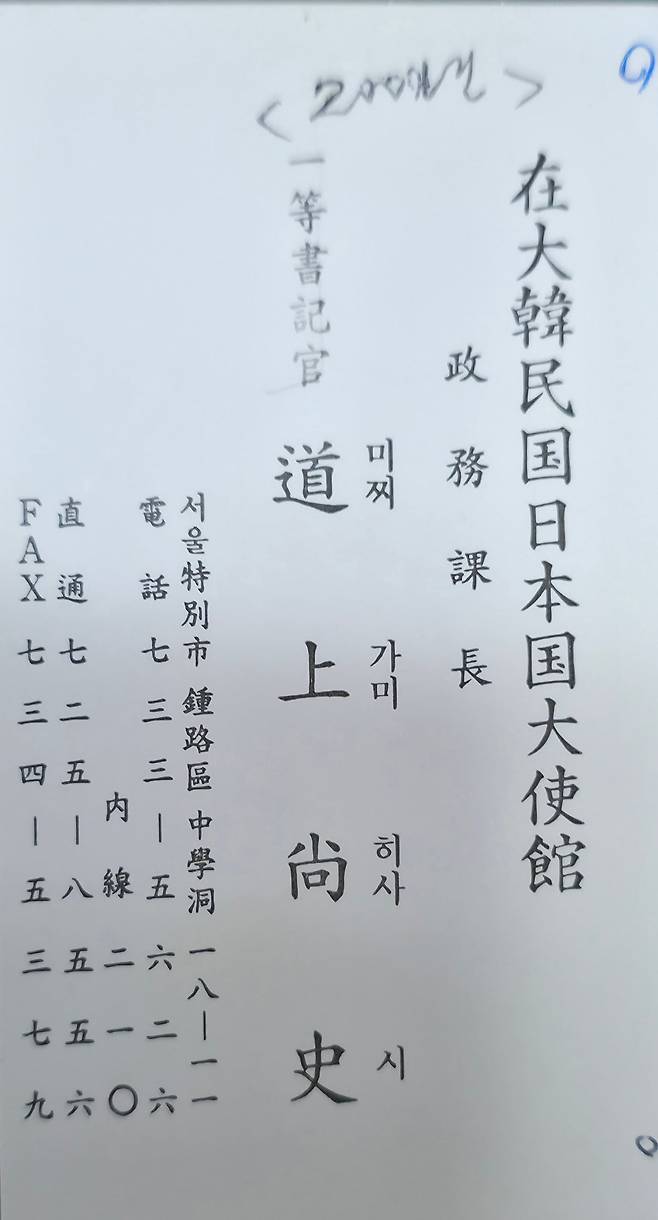 在大韓民国日本国大使館
政務課長
一等書記官
道上尚史
미찌 가미 히사 시
서울特別市 鍾路區 中學洞 一八―一一
電話 七三三―五六二六
内線 二一〇
直通 七二五―八五五六
FAX 七三四―五三七九